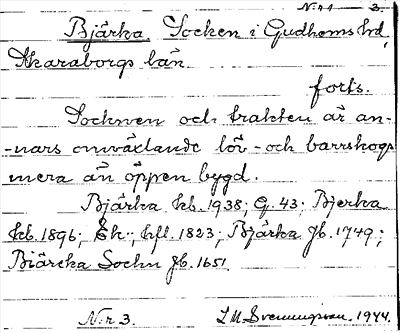 N:r 1 3.
Bjärka Socken i Gudhems hd,
Skaraborgs län.
forts.
Socknen och trakten är an-
-nars omväxlande löv- och barrskogs
mera än öppen bygd.
Bjärka kb. 1938; G. 43; Bjerka
kb. 1896; Ek.; hfl. 1823; Bjärka Jb. 1749;
Biärcka Sochn Jb. 1651.
N:r 3. L M Svenungsson. 1944.